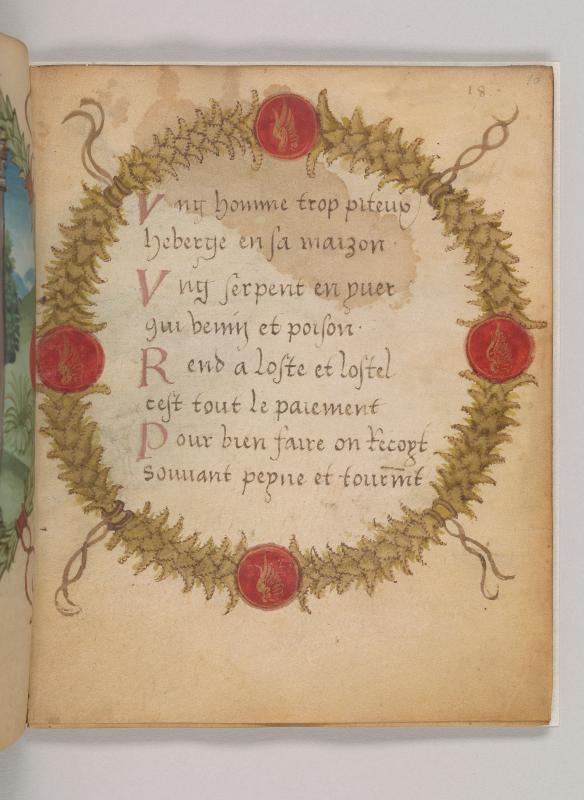 18.
16
Vng homme trop piteux
heberge en sa maizon.
Vng serpent en yuer
qui venin et poison.
Rend a loste et lostel
cest tout le paiement
Pour bien faire on recoyt
Souuant peyne et tourmt